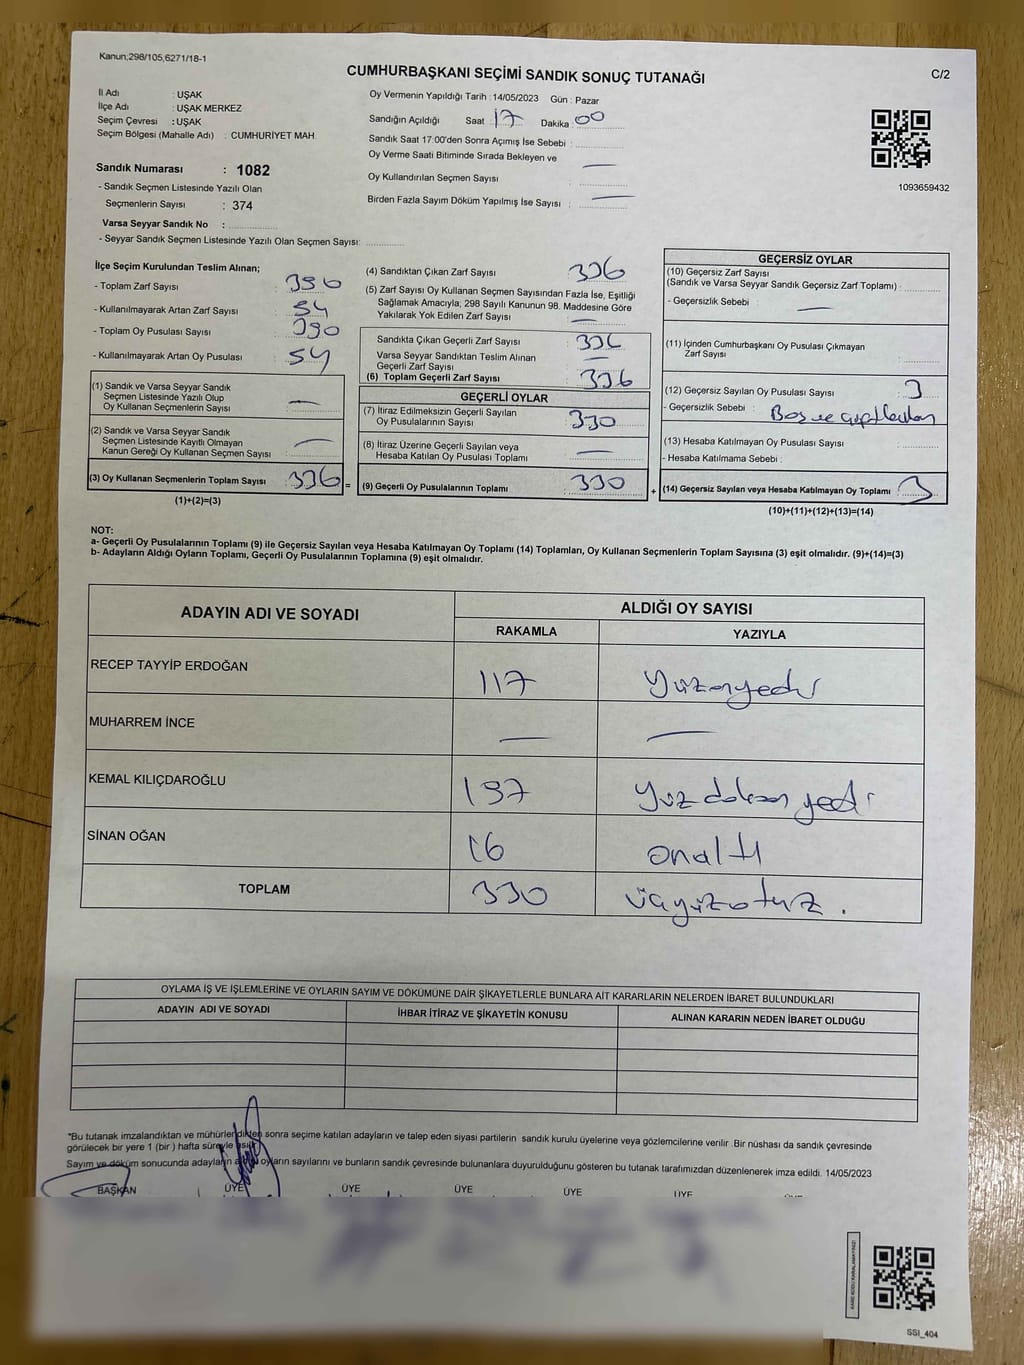 Kanun;298/105,6271/18-1
CUMHURBAŞKANI SEÇİMİ SANDIK SONUÇ TUTANAĞI
C/2
İl Adı : UŞAK
İlçe Adı : UŞAK MERKEZ
Seçim Çevresi : UŞAK
Seçim Bölgesi (Mahalle Adı) : CUMHURİYET MAH.
Sandık Numarası : 1082
- Sandık Seçmen Listesinde Yazılı Olan
Seçmenlerin Sayısı : 374
Varsa Seyyar Sandık No :
- Seyyar Sandık Seçmen Listesinde Yazılı Olan Seçmen Sayısı:
Oy Vermenin Yapıldığı Tarih : 14/05/2023 Gün : Pazar
Sandığın Açıldığı Saat 17 Dakika : 00
Sandık Saat 17:00'den Sonra Açımış İse Sebebi :
Oy Verme Saati Bitiminde Sırada Bekleyen ve
Oy Kullandırılan Seçmen Sayısı :
Birden Fazla Sayım Döküm Yapılmış İse Sayısı :
1093659432
İlçe Seçim Kurulundan Teslim Alınan;
- Toplam Zarf Sayısı : 390
- Kullanılmayarak Artan Zarf Sayısı : 54
- Toplam Oy Pusulası Sayısı : 390
- Kullanılmayarak Artan Oy Pusulası : 54
(1) Sandık ve Varsa Seyyar Sandık
Seçmen Listesinde Yazılı Olup
Oy Kullanan Seçmenlerin Sayısı : —
(2) Sandık ve Varsa Seyyar Sandık
Seçmen Listesinde Kayıtlı Olmayan
Kanun Gereği Oy Kullanan Seçmen Sayısı : —
(3) Oy Kullanan Seçmenlerin Toplam Sayısı : 336 =
(1)+(2)=(3)
(4) Sandıktan Çıkan Zarf Sayısı : 336
(5) Zarf Sayısı Oy Kullanan Seçmen Sayısından Fazla İse, Eşitliği
Sağlamak Amacıyla; 298 Sayılı Kanunun 98. Maddesine Göre
Yakılarak Yok Edilen Zarf Sayısı : —
Sandıkta Çıkan Geçerli Zarf Sayısı : 336
Varsa Seyyar Sandıktan Teslim Alınan
Geçerli Zarf Sayısı : —
(6) Toplam Geçerli Zarf Sayısı : 336
GEÇERLİ OYLAR
(7) İtiraz Edilmeksizin Geçerli Sayılan
Oy Pusulalarının Sayısı : 330
(8) İtiraz Üzerine Geçerli Sayılan veya
Hesaba Katılan Oy Pusulası Toplamı : —
(9) Geçerli Oy Pusulalarının Toplamı : 330 +
GEÇERSİZ OYLAR
(10) Geçersiz Zarf Sayısı
(Sandık ve Varsa Seyyar Sandık Geçersiz Zarf Toplamı) :
- Geçersizlik Sebebi : —
(11) İçinden Cumhurbaşkanı Oy Pusulası Çıkmayan
Zarf Sayısı :
(12) Geçersiz Sayılan Oy Pusulası Sayısı : 3
- Geçersizlik Sebebi : Boş ve
(13) Hesaba Katılmayan Oy Pusulası Sayısı :
- Hesaba Katılmama Sebebi :
(14) Geçersiz Sayılan veya Hesaba Katılmayan Oy Toplamı : 3
(10)+(11)+(12)+(13)=(14)
NOT:
a- Geçerli Oy Pusulalarının Toplamı (9) ile Geçersiz Sayılan veya Hesaba Katılmayan Oy Toplamı (14) Toplamları, Oy Kullanan Seçmenlerin Toplam Sayısına (3) eşit olmalıdır. (9)+(14)=(3)
b- Adayların Aldığı Oyların Toplamı, Geçerli Oy Pusulalarının Toplamına (9) eşit olmalıdır.
ADAYIN ADI VE SOYADI ALDIĞI OY SAYISI
RAKAMLA YAZIYLA
RECEP TAYYİP ERDOĞAN 117 Yüzonyedi
MUHARREM İNCE — —
KEMAL KILIÇDAROĞLU 197 Yüz doksan yedi
SİNAN OĞAN 16 onaltı
TOPLAM 330 üçyüzotuz.
OYLAMA İŞ VE İŞLEMLERİNE VE OYLARIN SAYIM VE DÖKÜMÜNE DAİR ŞİKAYETLERLE BUNLARA AİT KARARLARIN NELERDEN İBARET BULUNDUKLARI
ADAYIN ADI VE SOYADI İHBAR İTİRAZ VE ŞİKAYETİN KONUSU ALINAN KARARIN NEDEN İBARET OLDUĞU
*Bu tutanak imzalandıktan ve mühürlendikten sonra seçime katılan adayların ve talep eden siyasi partilerin sandık kurulu üyelerine veya gözlemcilerine verilir .Bir nüshası da sandık çevresinde
görülecek bir yere 1 (bir ) hafta süreyle asılır.
Sayım ve döküm sonucunda adayların aldığı oyların sayılarını ve bunların sandık çevresinde bulunanlara duyurulduğunu gösteren bu tutanak tarafımızdan düzenlenerek imza edildi. 14/05/2023
BAŞKAN ÜYE ÜYE ÜYE ÜYE ÜYE ÜYE
SSI_404